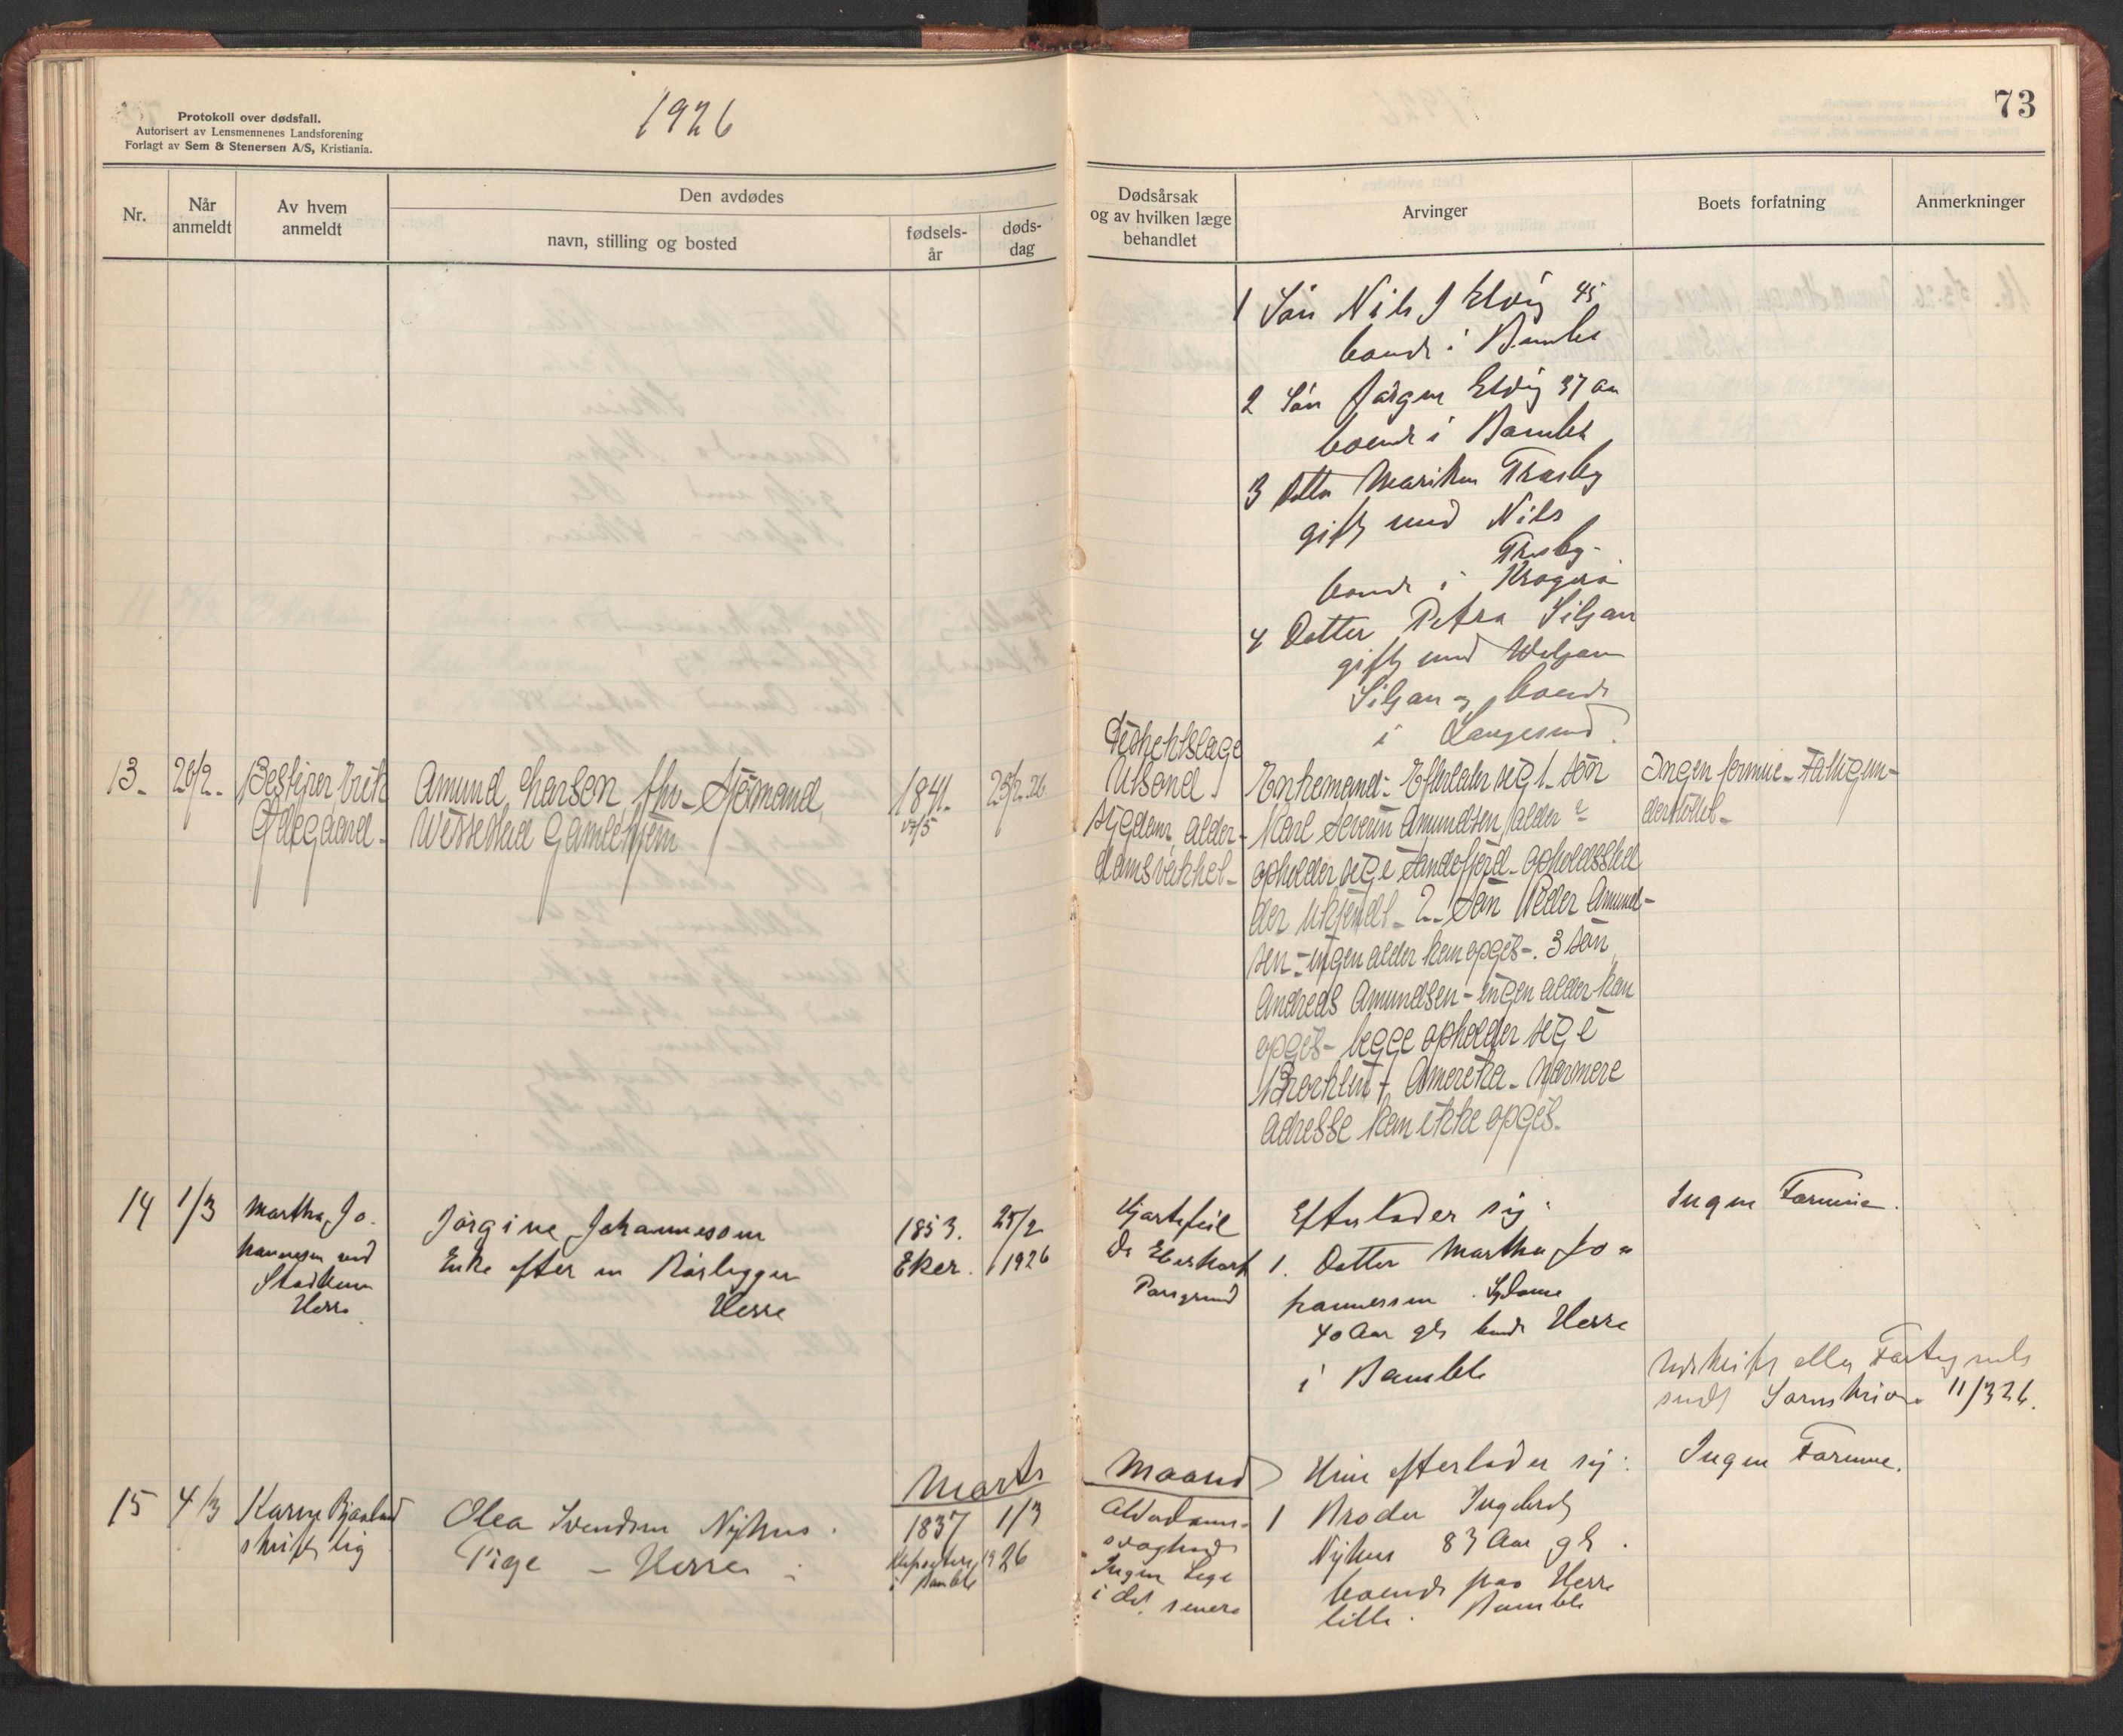 Protokoll over dødsfall.
Autorisert av Lensmennenes Landsforening
Forlagt av Sem & Stenersen A/S, Kristiania.
1926
73
Nr.
Når
anmeldt
Av hvem
anmeldt
Den avdødes
navn, stilling og bosted
fødsels-
år
døds-
dag
Dødsårsak
og av hvilken læge
behandlet
Arvinger
Boets forfatning
Anmerkninger
1 Sön Nils J Elvig 45
boende i Bamble
2 Sön Jörgen Elvig 37 aar
boende i Bamble
3 Datter Trosby
gift med Nils
Trosby -
boende i Kragerö
4 Datter Petra Siljan
gift med
Siljan og boende
i Langesund.
13.
26/2.
Bestyrer Erik
Ødegaard.
Amund Larsen fhv. Sjömand
Gamlehjem
1841.
17/5
25/2.26
Distriktslæge
Utsond.
sygdom, alder-
damsvakhet.
Enkemand. Efterlater seg 1. sön
Karl Severin Amundsen, alder ?
opholder seg i Sandefjord - opholdssted
der ukjendt. 2. Sön Peder Amund-
sen - ingen alder kan opgis -. 3 sön
Andreas Amundsen - ingen alder kan
opgis - begge opholder seg i
Brooklin, Amerika - nærmere
adresse kan ikke opgis.
Ingen formue. Fattigun-
derstöttet.
14
1/3
Martha Jo-
hannesen ved
Herre
Jörgine Johannesen
Enke efter en Rörlegger
Herre
1853.
Eker.
25/2
1926
Hjertefeil
Dr
Porsgrund
Efterlader sig:
1. Datter Martha Jo =
hannessen.
40 Aar gl. boende Herre
i Bamble
Ingen Formue.
Udskrift eller
sendt Sorenskriver 11/3 26.
Marts Maaned
15
4/3
Karen Bjaaland
skriftlig
Olea Svendsen Nyhus.
Pige - Herre
1837
i Bamble
1/3
1926
Alderdoms-
svaghed
Ingen Lege
i det senere
Hun efterlader sig:
1 Broder Ingebret
Nyhus 83 Aar gl.
boende paa Herre
Bamble
Ingen Formue.